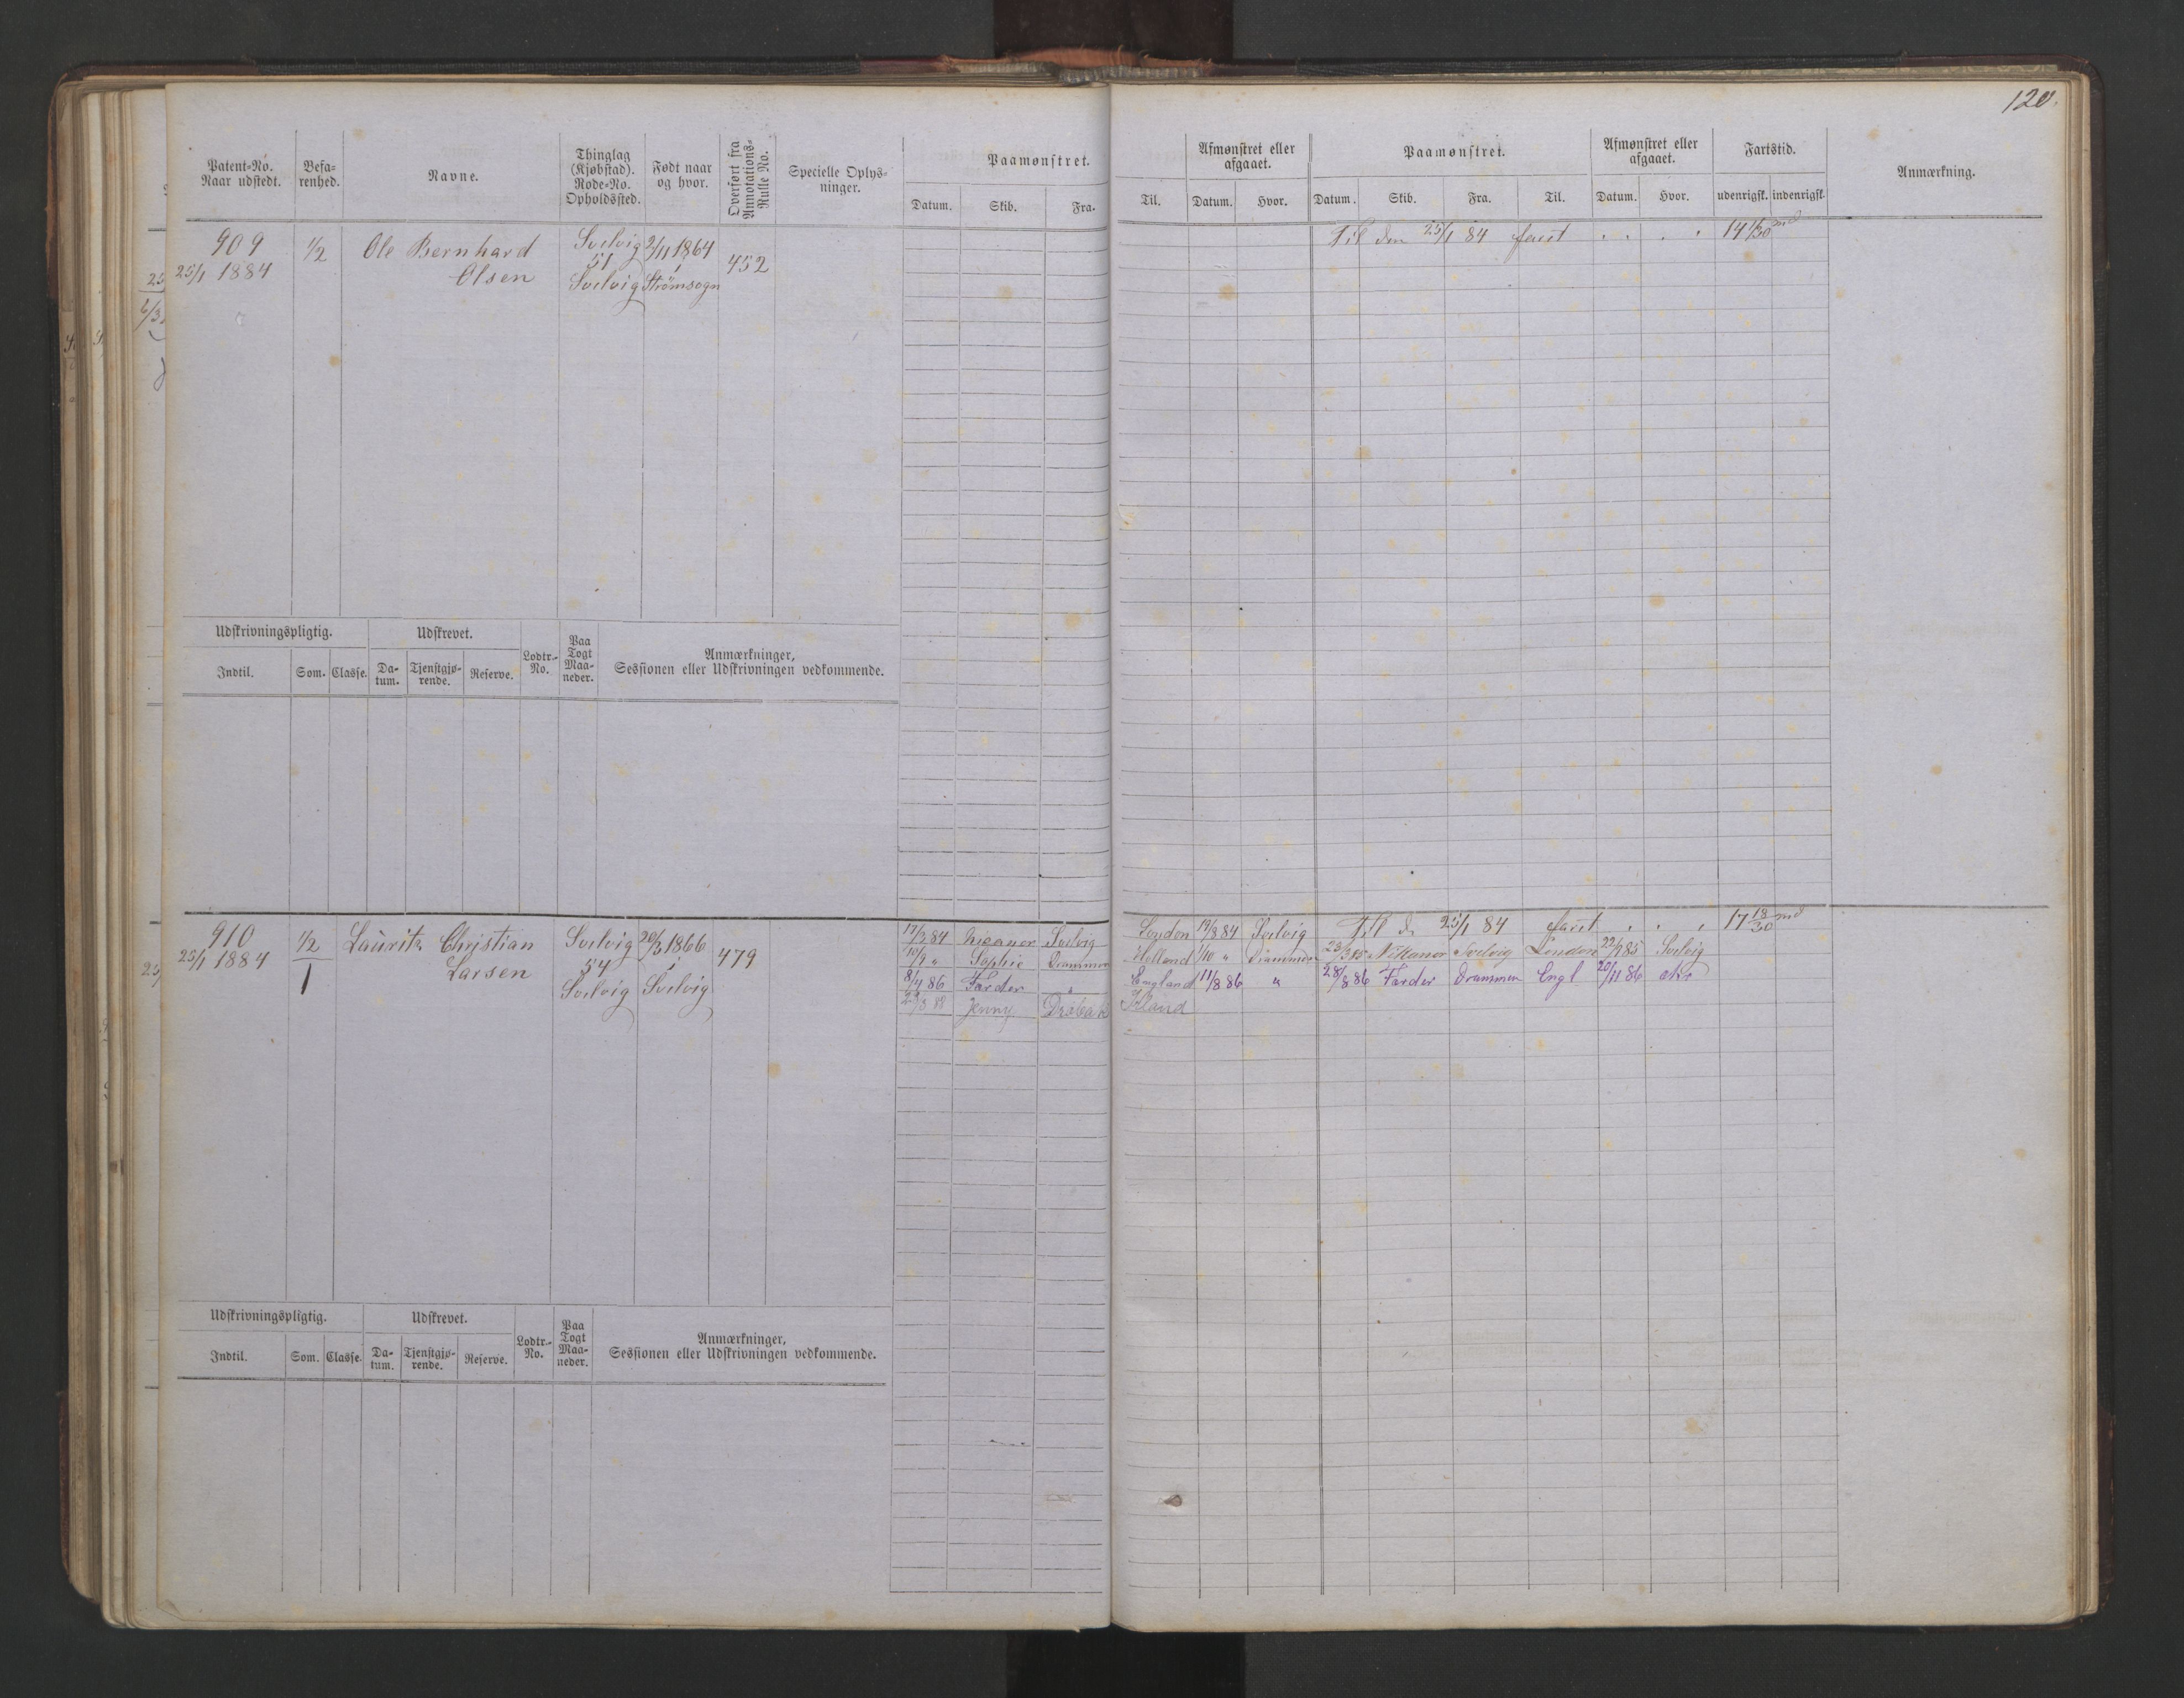 120.
Patent-No. Naar udstedt. Befa-renhed. Navne. Thinglag (Kjøbstad). Rode-No. Opholdssted. Født naar og hvor. Overført fra Annotations-Rulle No. Specielle Oplys-ninger. Paamønstret. Afmønstret eller afgaaet. Paamønstret. Afmønstret eller afgaaet. Fartstid. Anmærkning.
Datum. Skib. Fra. Til. Datum. Hvor. Datum. Skib. Fra. Til. Datum. Hvor. udenrigsk. indenrigsk.
909 1/2 Ole Bernhard Svelvig 2/11 1864 452 Til den 25/1 84 faret 14 1/30 md
25/1 1884 Olsen 51
Svelvig Strømsogn
Udskrivningspligtig. Udskrevet. Lodtr.-No. Paa Togt Maa-neder. Anmærkninger, Sessionen eller Udskrivningen vedkommende.
Indtil. Som. Classe. Da-tum. Tjenstgjø-rende. Reserve.
910 1/2 Lauritz Christian Svelvig 20/3 1866 479 17/3 84 Nicanor Svelvig London 84 Svelvig Til d. 25/1 84 faret 17 18/30 md
25/1 1884 1 Larsen 54 " Sophie Drammen Holland 1/10 " Drammen 85 Nikanor Svelvig London 85 Svelvig
Svelvig Svelvig 8/4 86 Færder " England 11/8 86 " 28/8 86 Færder Drammen Engl 20/11 86
88 Jenny Drøbak
Udskrivningspligtig. Udskrevet. Lodtr.-No. Paa Togt Maa-neder. Anmærkninger, Sessionen eller Udskrivningen vedkommende.
Indtil. Som. Classe. Da-tum. Tjenstgjø-rende. Reserve.